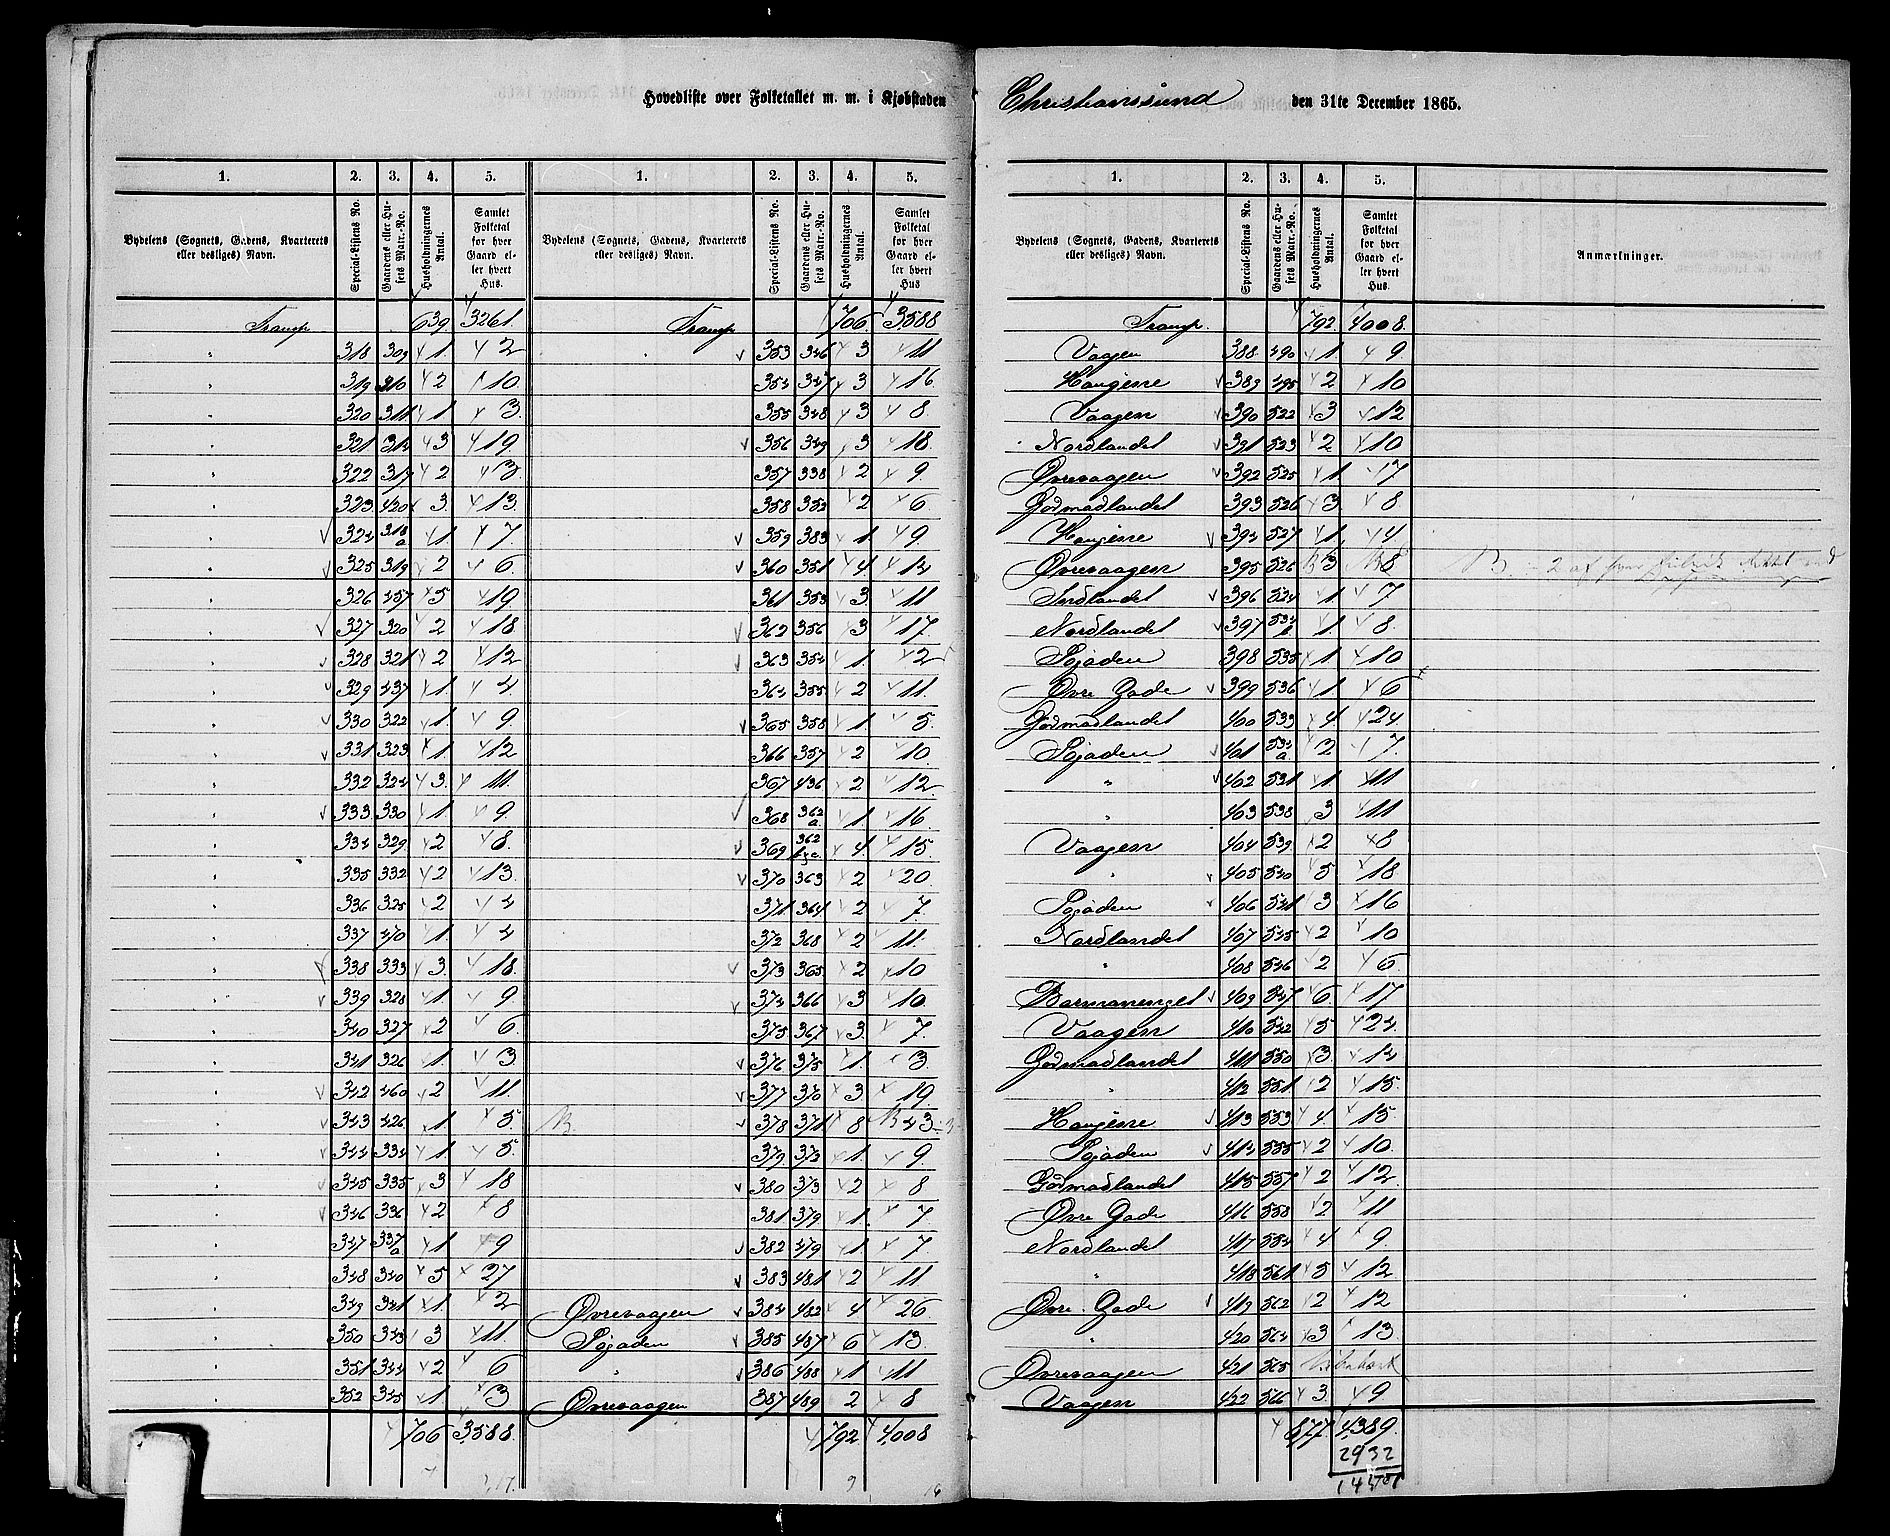 Hovedliste over Folketallet m. m. i Kjøbstaden Christianssund den 31te December 1865.
1. 2. 3. 4. 5. 1. 2. 3. 4. 5.
Bydelens (Sognets, Gadens, Kvarterets eller desliges) Navn. Special-Listens No. Gaardens eller Husets Matr.-No. Husholdningernes Antal. Samlet Folketal for hver Gaard eller hvert Hus Bydelens (Sognets, Gadens, Kvarterets eller desliges) Navn. Special-Listens No. Gaardens eller Husets Matr.-No. Husholdningernes Antal. Samlet Folketal for hver Gaard eller hvert Hus
Transp. 639 3261 Transp. 706 3588
" 318 309 1 2 " 353 346 3 11
" 319 310 2 10 354 347 3 16
" 320 311 1 3 355 348 3 8
" 321 312 3 19 356 349 3 18
" 322 317 2 3 357 338 2 9
" 323 420 3 13 358 352 2 6
" 324 318a 1 7 359 383 1 9
" 325 319 2 6 360 351 4 14
" 326 457 5 19 361 353 3 11
" 327 320 2 18 362 356 3 17
" 328 321 2 12 363 354 1 2
" 329 437 1 4 364 355 2 11
" 330 322 1 9 365 358 1 5
" 331 323 1 12 366 357 2 10
" 332 324 3 11 367 436 2 12
" 333 330 1 9 368 362a 1 16
" 334 329 2 8 369 362 4 15
" 335 332 2 13 370 363 2 20
" 336 325 2 4 371 364 2 7
" 337 470 1 4 372 368 2 11
" 338 333 3 18 373 365 2 10
" 339 328 1 9 374 366 3 10
" 340 327 2 6 375 367 3 7
" 341 326 1 3 376 375 1 3
" 342 460 2 11 377 370 3 19
" 343 426 1 5 378 371 8 43
" 344 334 1 5 379 372 1 9
" 345 335 3 18 380 373 2 8
" 346 336 2 8 381 379 1 7
" 347 337a 1 9 382 479 1 7
" 348 340 5 27 383 481 2 11
" 349 341 1 2 Øvrevaagen 384 482 4 26
" 350 343 3 11 Søgaden 385 487 6 13
" 351 344 2 6 " 386 488 1 11
" 352 345 1 3 Øvrevaagen 387 489 2 8
706 3,588 792 4,008
1. 2. 3. 4. 5.
Bydelens (Sognets, Gadens, Kvarterets eller desliges) Navn. Special-Listens No. Gaardens eller Husets Matr.-No. Husholdningernes Antal. Samlet Folketal for hver Gaard eller hvert Hus. Anmærkninger.
Transp. 792 4008
Vaagen 388 490 1 9
Haugene 389 495 2 10
Vaagen 390 522 3 12
Nordlandet 391 523 2 10
Øvrevaagen 392 525 1 7
Gjømadlandet 393 526 3 8
Haugene 394 527 1 4
Øvrevaagen 395 526 3 8 2 af
Sørlandet 396 524 1 7
Nordlandet 397 534b 1 8
Søgaden 398 535 1 10
Øvre Gade 399 536 1 6
Gjømadlandet 400 533 4 24
Søgaden 401 534a 2 7
" 402 531 1 11
" 403 538 3 11
Vaagen 404 539 2 8
" 405 540 5 18
Søgaden 406 541 3 16
Nordlandet 407 545 2 10
" 408 546 2 6
Barmanenget 409 547 6 17
Vaagen 410 542 5 24
Gjømadlandet 411 550 3 14
" 412 551 2 15
Haugene 413 553 4 15
Søgaden 414 555 2 10
Gjømadlandet 415 557 2 12
Øvre Gade 416 558 2 11
Nordlandet 417 554 4 9
" 418 561 5 12
Øvre Gade 419 562 2 12
" 420 564 3 13
Øvrevaagen 421 565 Ubeboet
Vaagen 422 566 3 9
877 4,389
2932